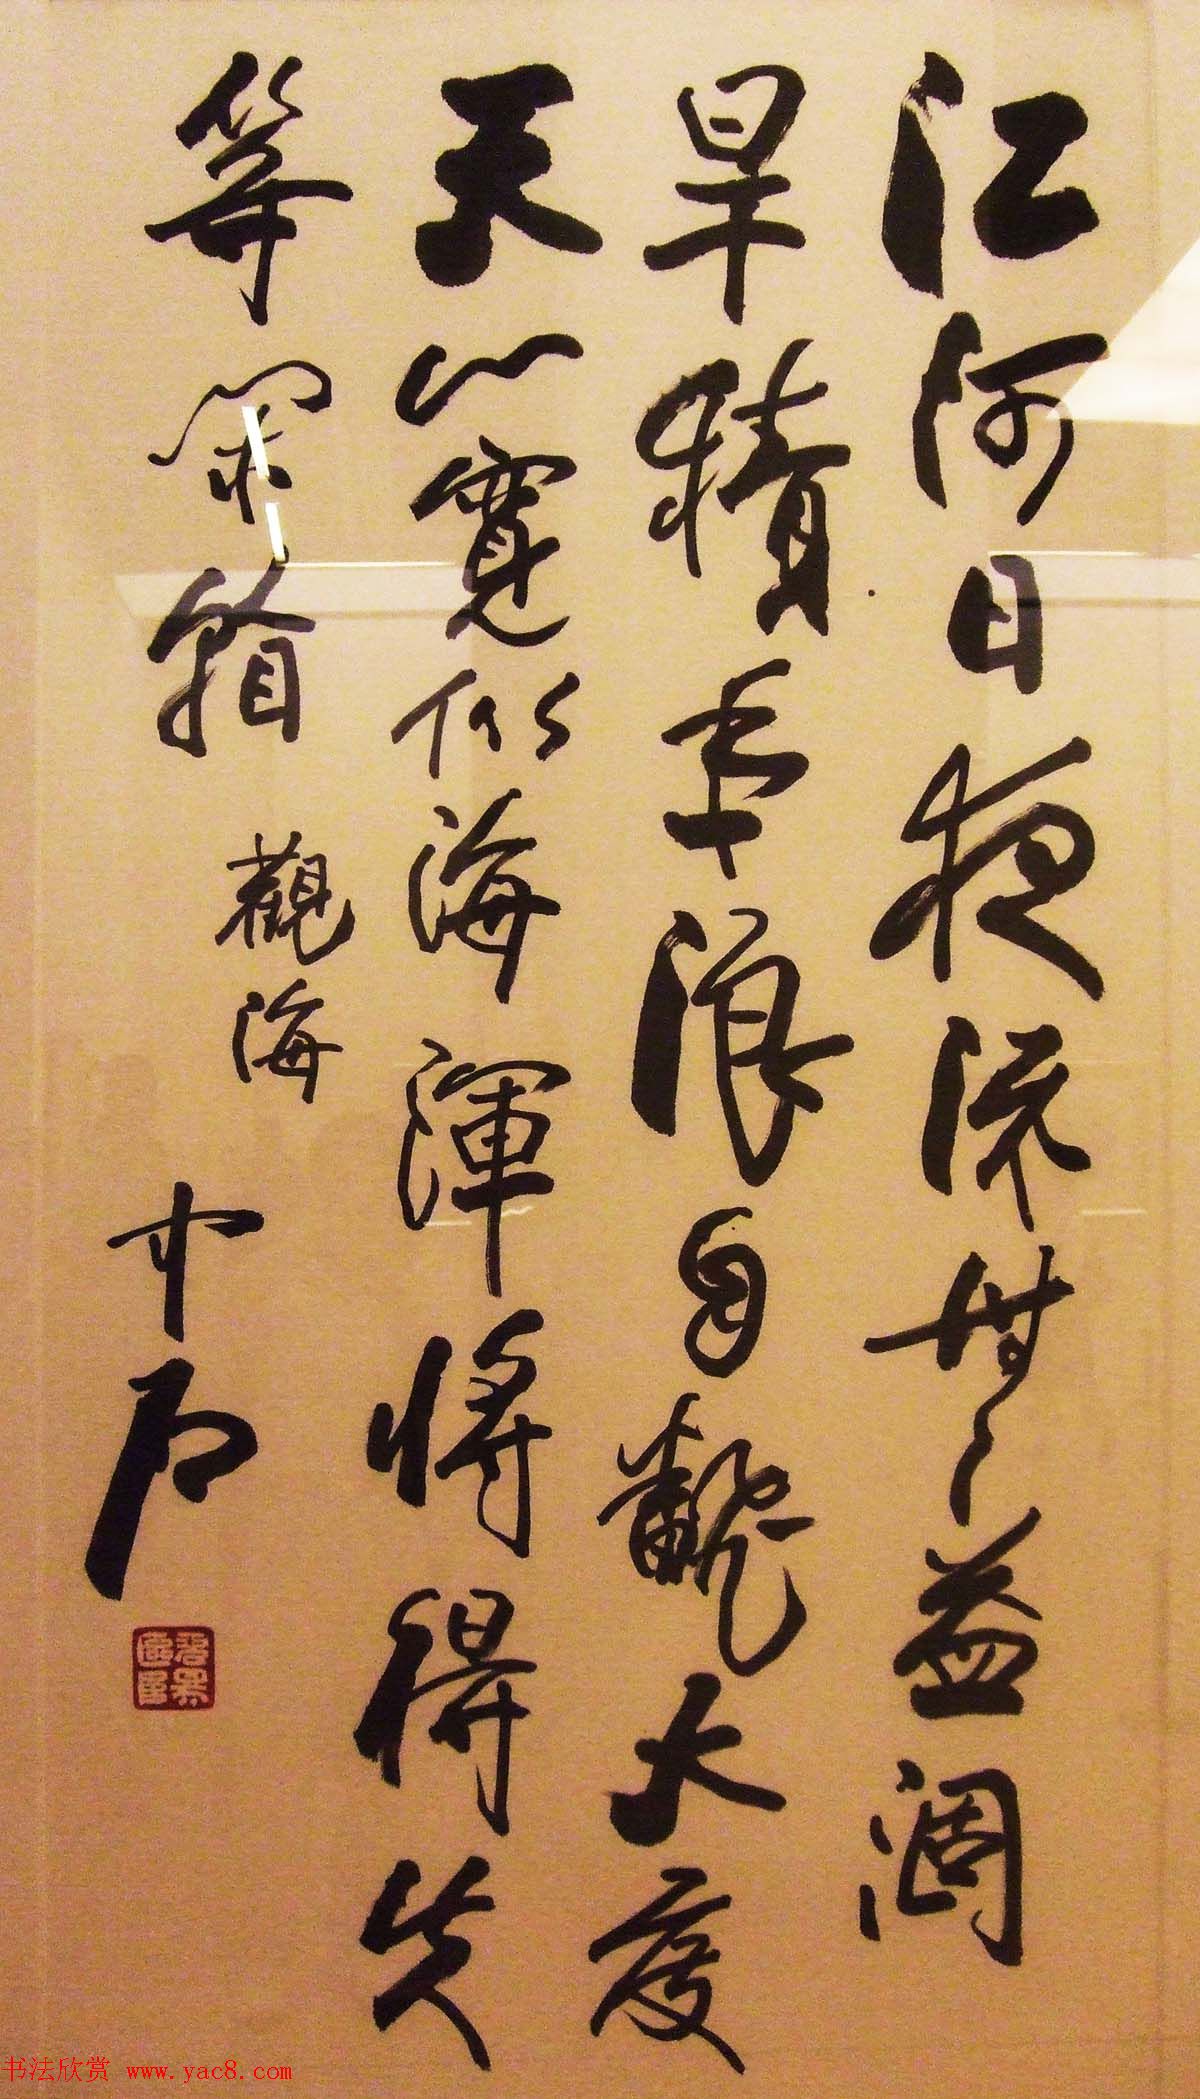 江河日夜流無益涸
旱積年浪自翻大度
天心寬似海渾將得失
等閑看
觀海
中石
书法欣赏 www.yac8.com